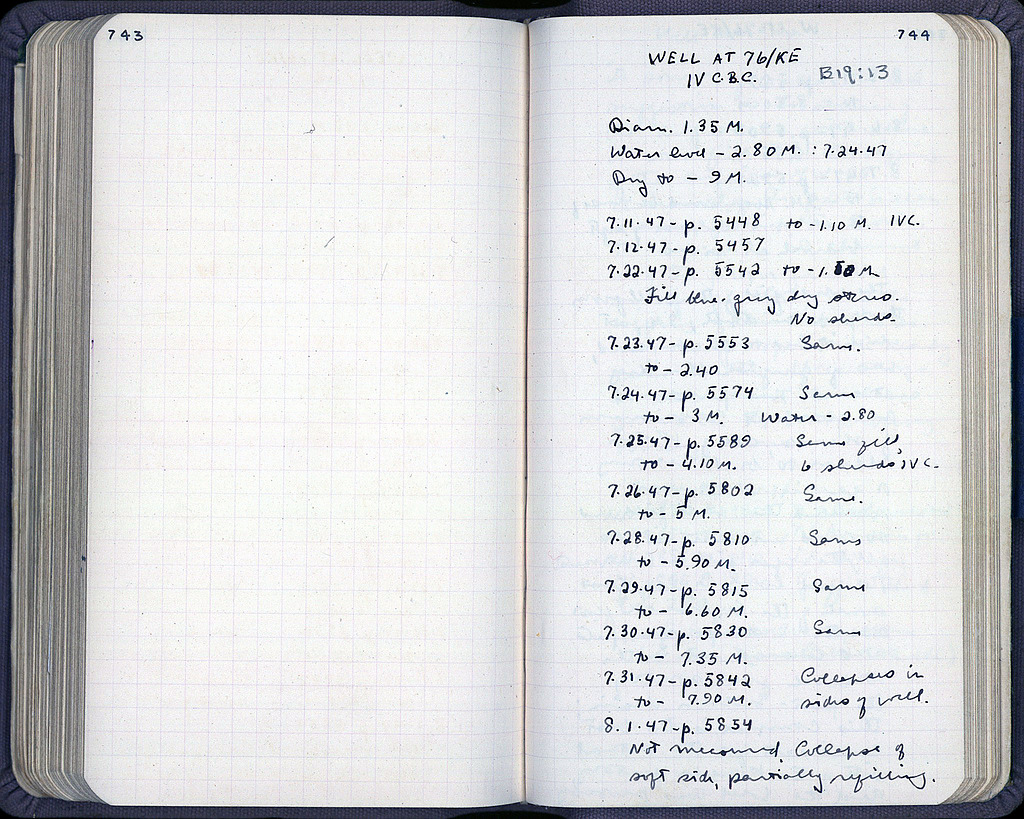 743
744
WELL AT 76/KE
IV C.B.C.
B19:13
Diam. 1.35 M.
Water level - 2.80 M. : 7.24.47
Dug to - 9 M.
7.11.47 - p. 5448 to -1.10 M. IVC.
7.12.47 - p. 5457
7.22.47 - p. 5542 to -1.50 M
Fill blue-gray dry
No sherds.
7.23.47 - p. 5553 Same.
to - 2.40
7.24.47 - p. 5574 Same
to - 3 M. Water - 2.80
7.25.47 - p. 5589 Same fill,
to - 4.10 M. 6 sherds, IVC.
7.26.47 - p. 5802 Same.
to - 5 M.
7.28.47 - p. 5810 Same
to - 5.90 M.
7.29.47 - p. 5815 Same
to - 6.60 M.
7.30.47 - p. 5830 Same
to - 7.35 M.
7.31.47 - p. 5842 Collapses in
to - 7.90 M. sides of well.
8.1.47 - p. 5854
Not measured, Collapse of
soft side, partially refilling.